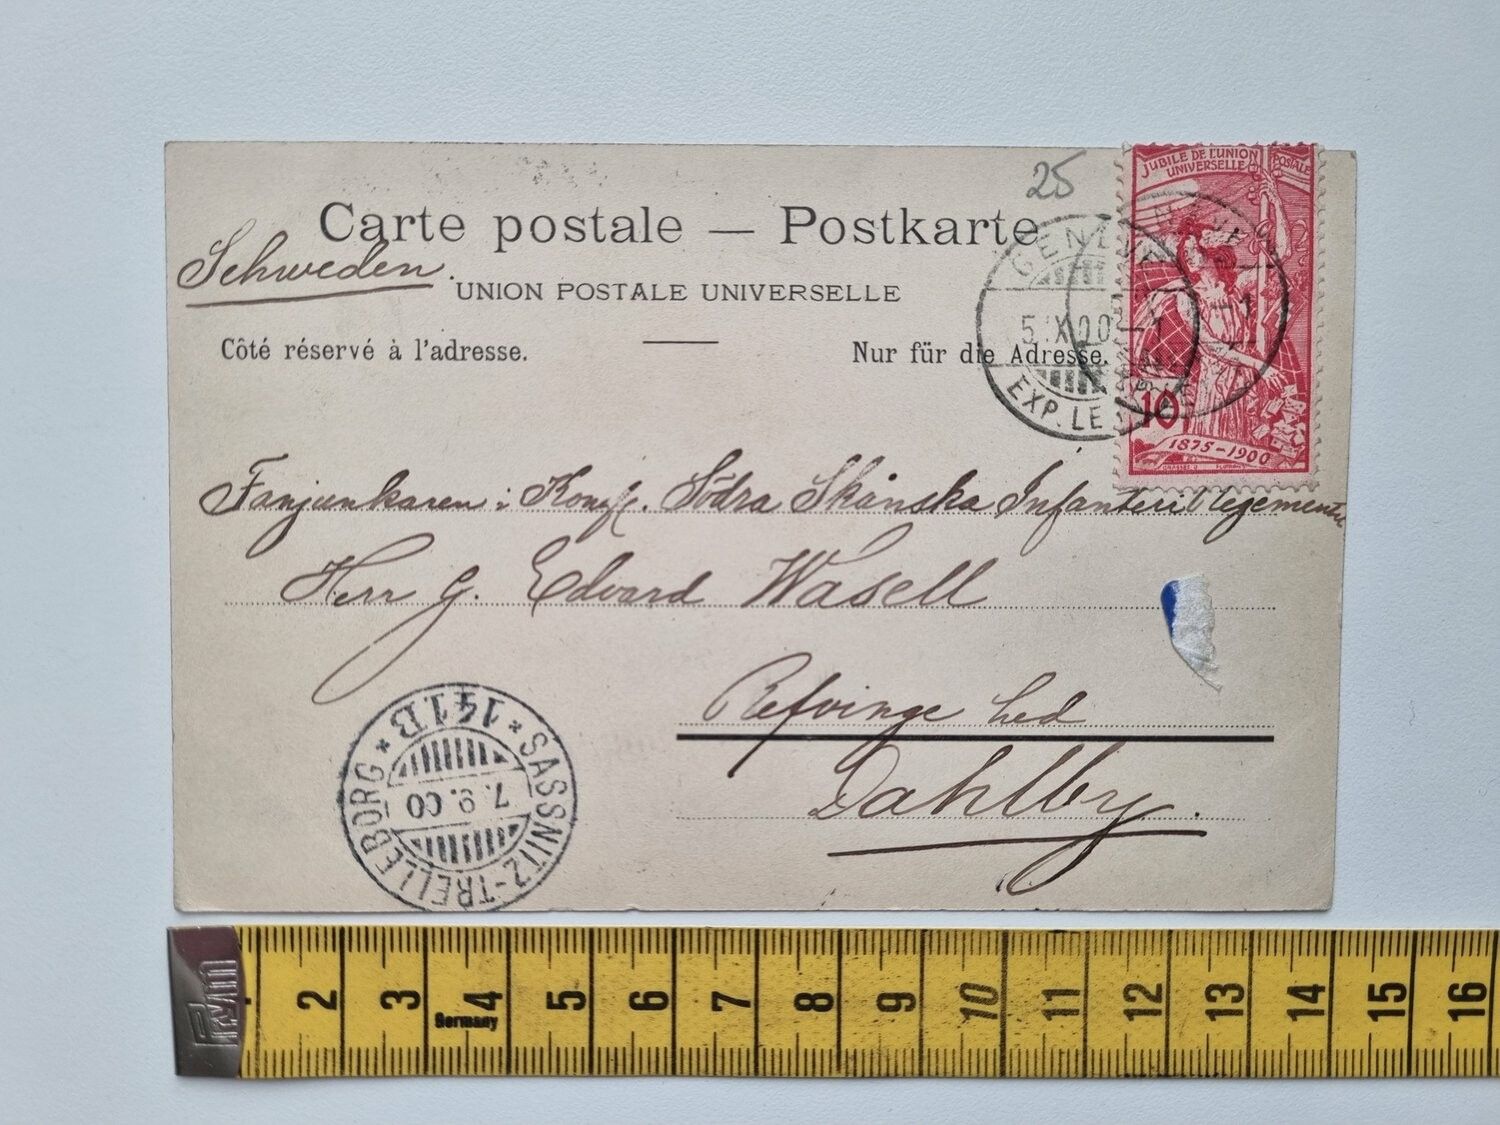 25
JUBILÉ DE L'UNION POSTALE
UNIVERSELLE
Carte postale — Postkarte
Schweden.
UNION POSTALE UNIVERSELLE
Côté réservé à l'adresse.
Nur für die Adresse.
GENÈVE
5.IX.00–1
EXP. LE
10
1875–1900
Fanjunkaren i Kongl. Södra Skånska Infanteri Regementet
Herr G. Edvard Wasell
Refvinge hed
Dahlby.
SASSNITZ-TRELLEBORG * 141.B *
7.9.00
Prym
Germany
2 3 4 5 6 7 8 9 10 11 12 13 14 15 16